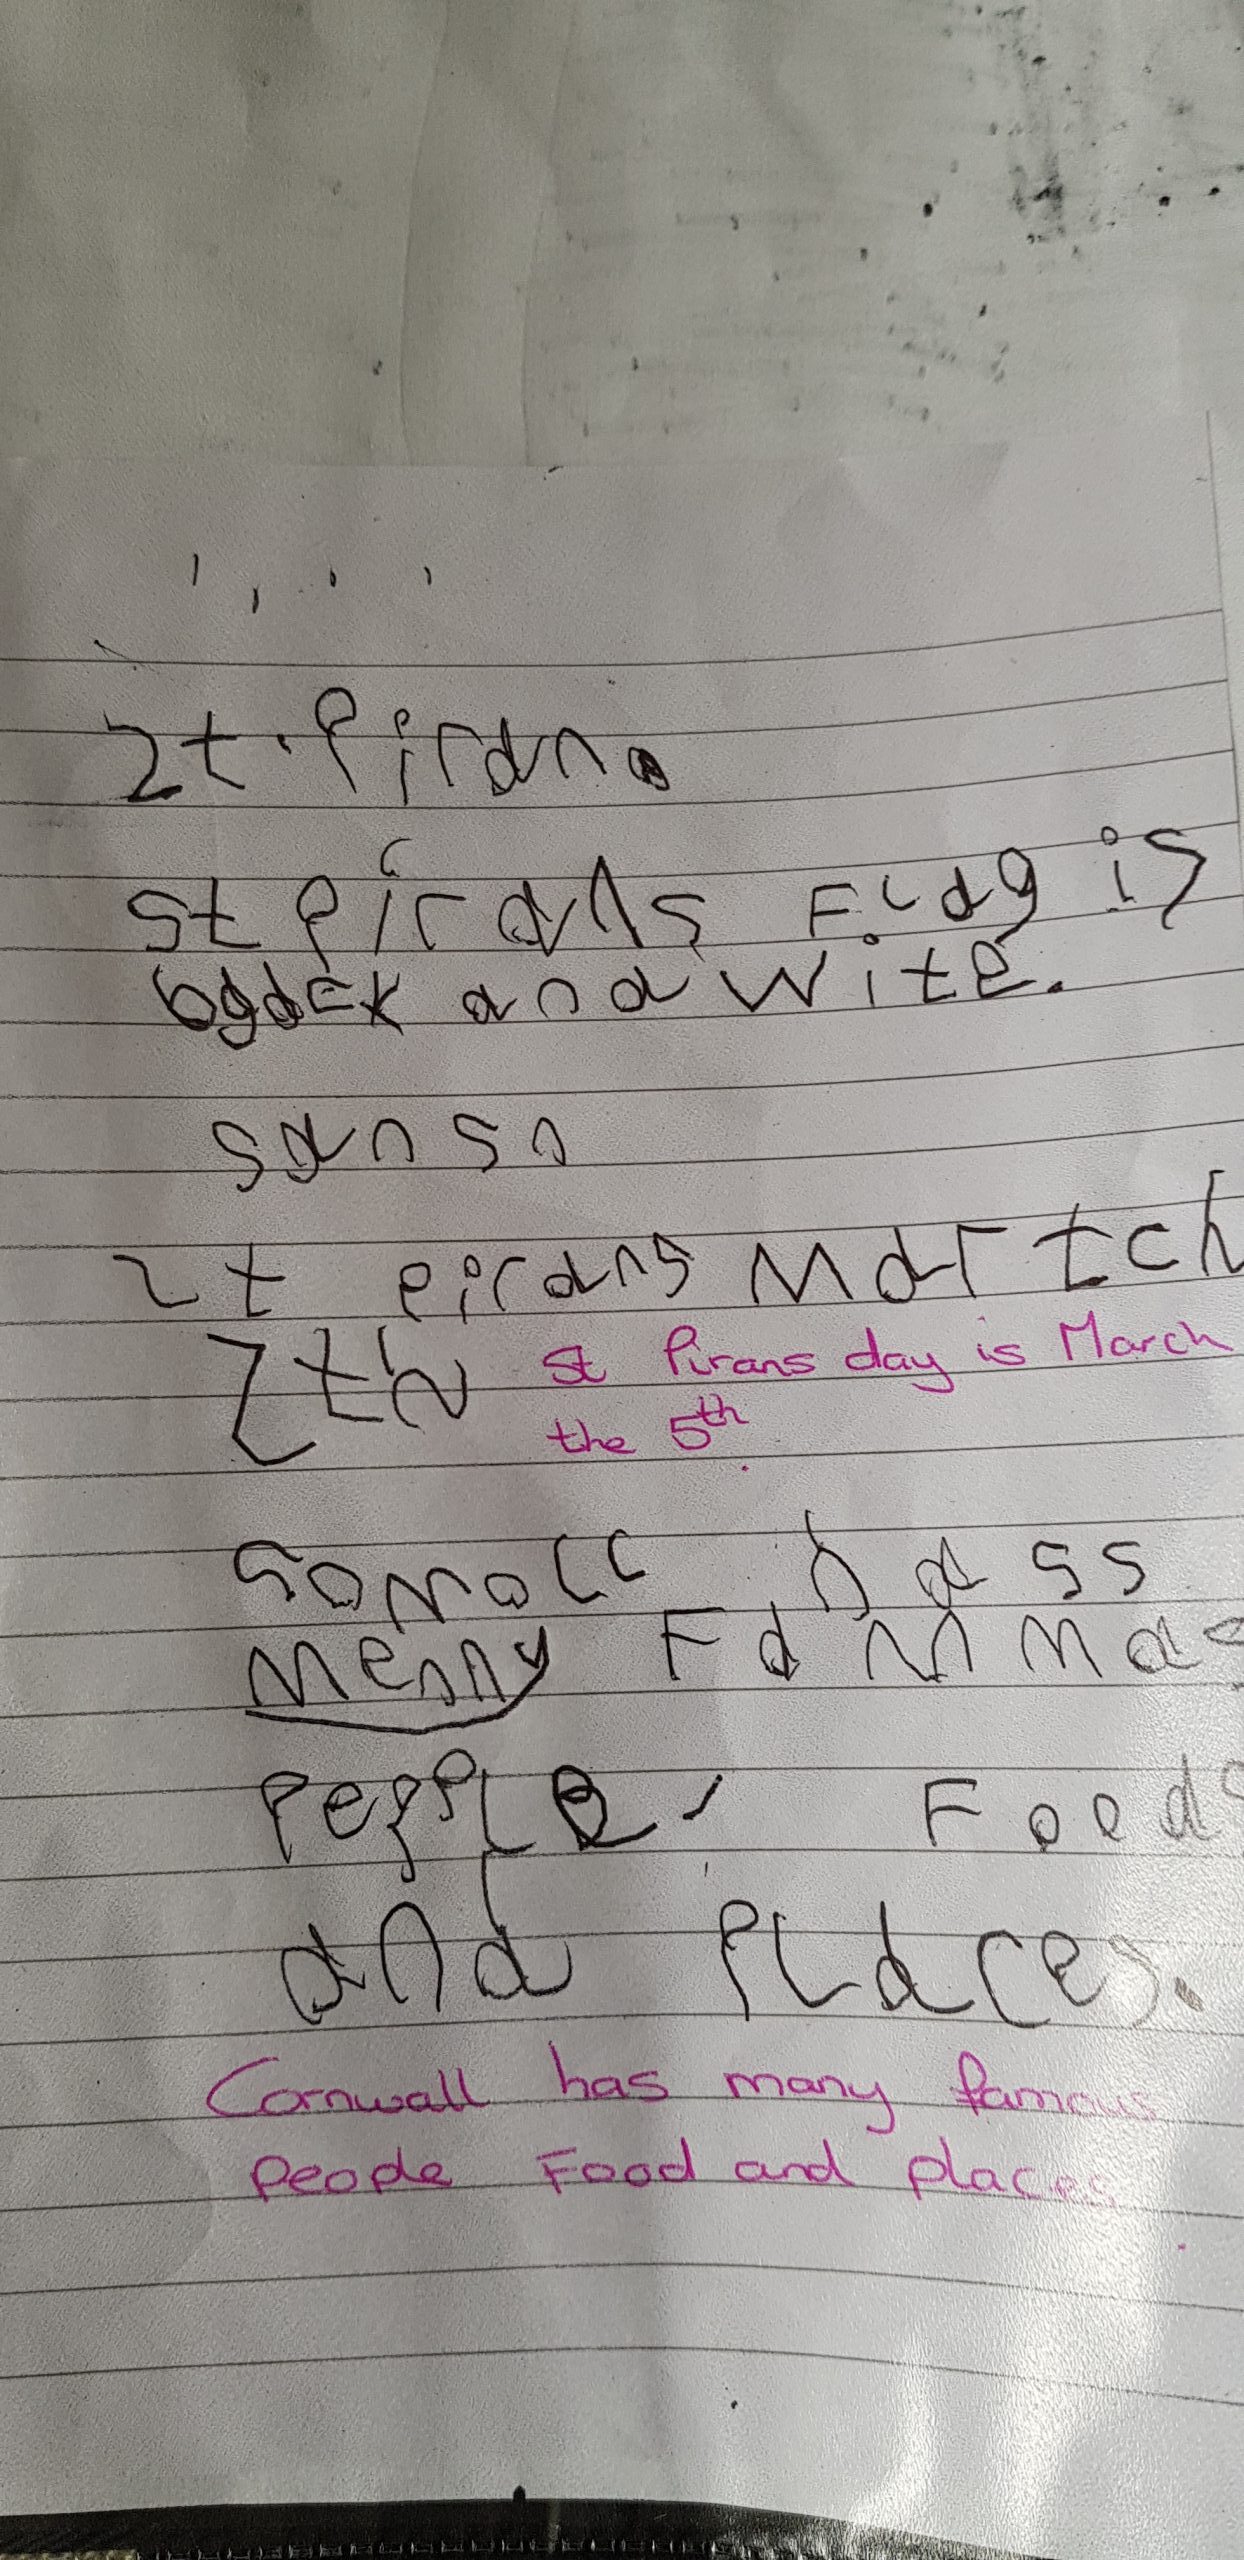 2t. Piran.
st Pirans Flag is
and wite.
sansn
2t pirans Martch
5th St Pirans day is March
the 5th
hass
menny
Pepple, Food
and Places.
Cornwall has many famous
people Food and places